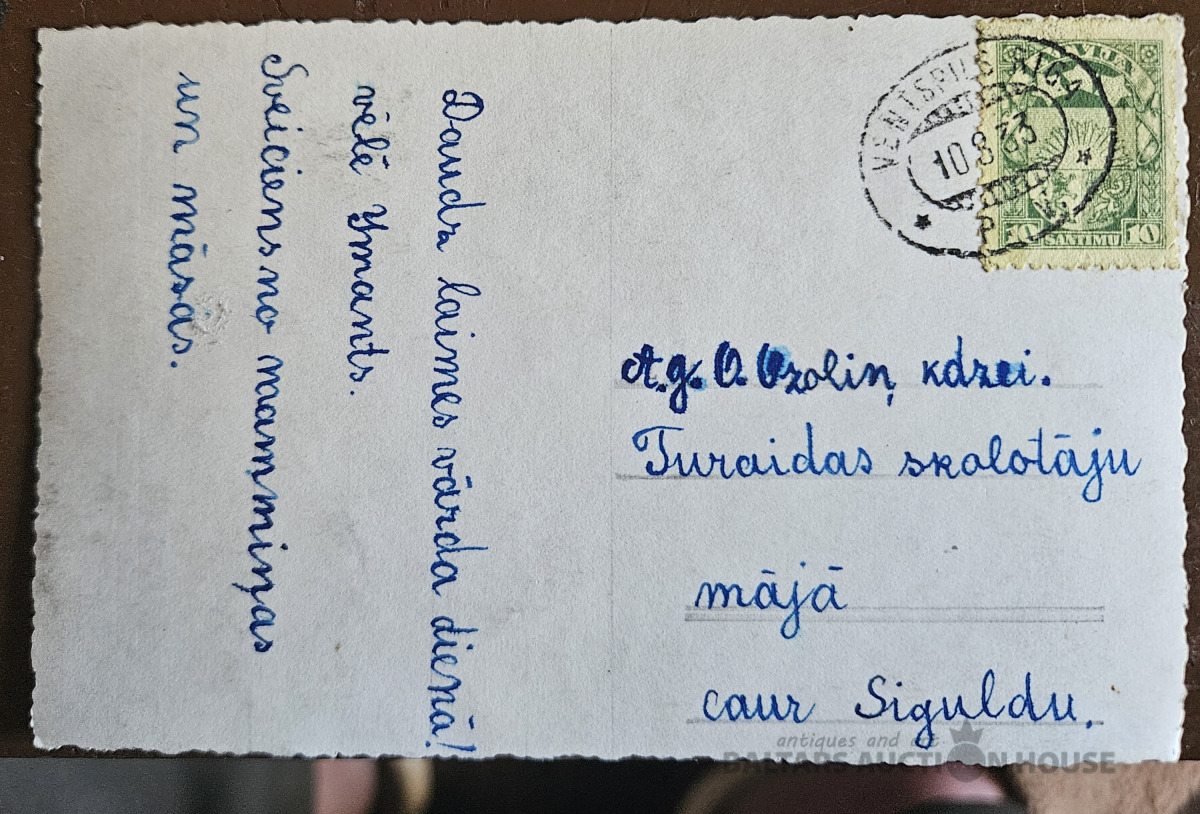 Daudz laimes vārda dienā!
vēlē Ymants.
Sveiciens no mammiņas
un māsas.
LATVIJA
10 SANTIMU 10
VENTSPILS RIGA
10 8 33
A.g. O. Ozoliņ kdzei.
Turaidas skolotāju
mājā
caur Siguldu.
antiques and art
BALTARS AUCTION HOUSE